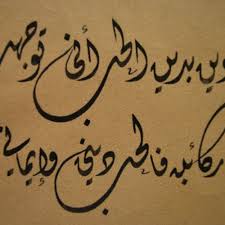 أدين بدين الحب أنى توجهت
ركائبه فالحب ديني وإيماني